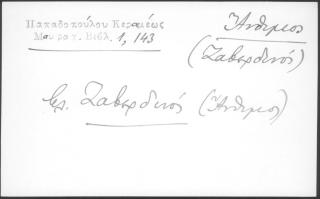 Παπαδοπούλου Κεραμέως
Μαυρογ. Βιβλ. 1, 143
Ἄνθιμος
(Ζαβερδινός)
βλ. Ζαβερδινός (Ἄνθιμος)